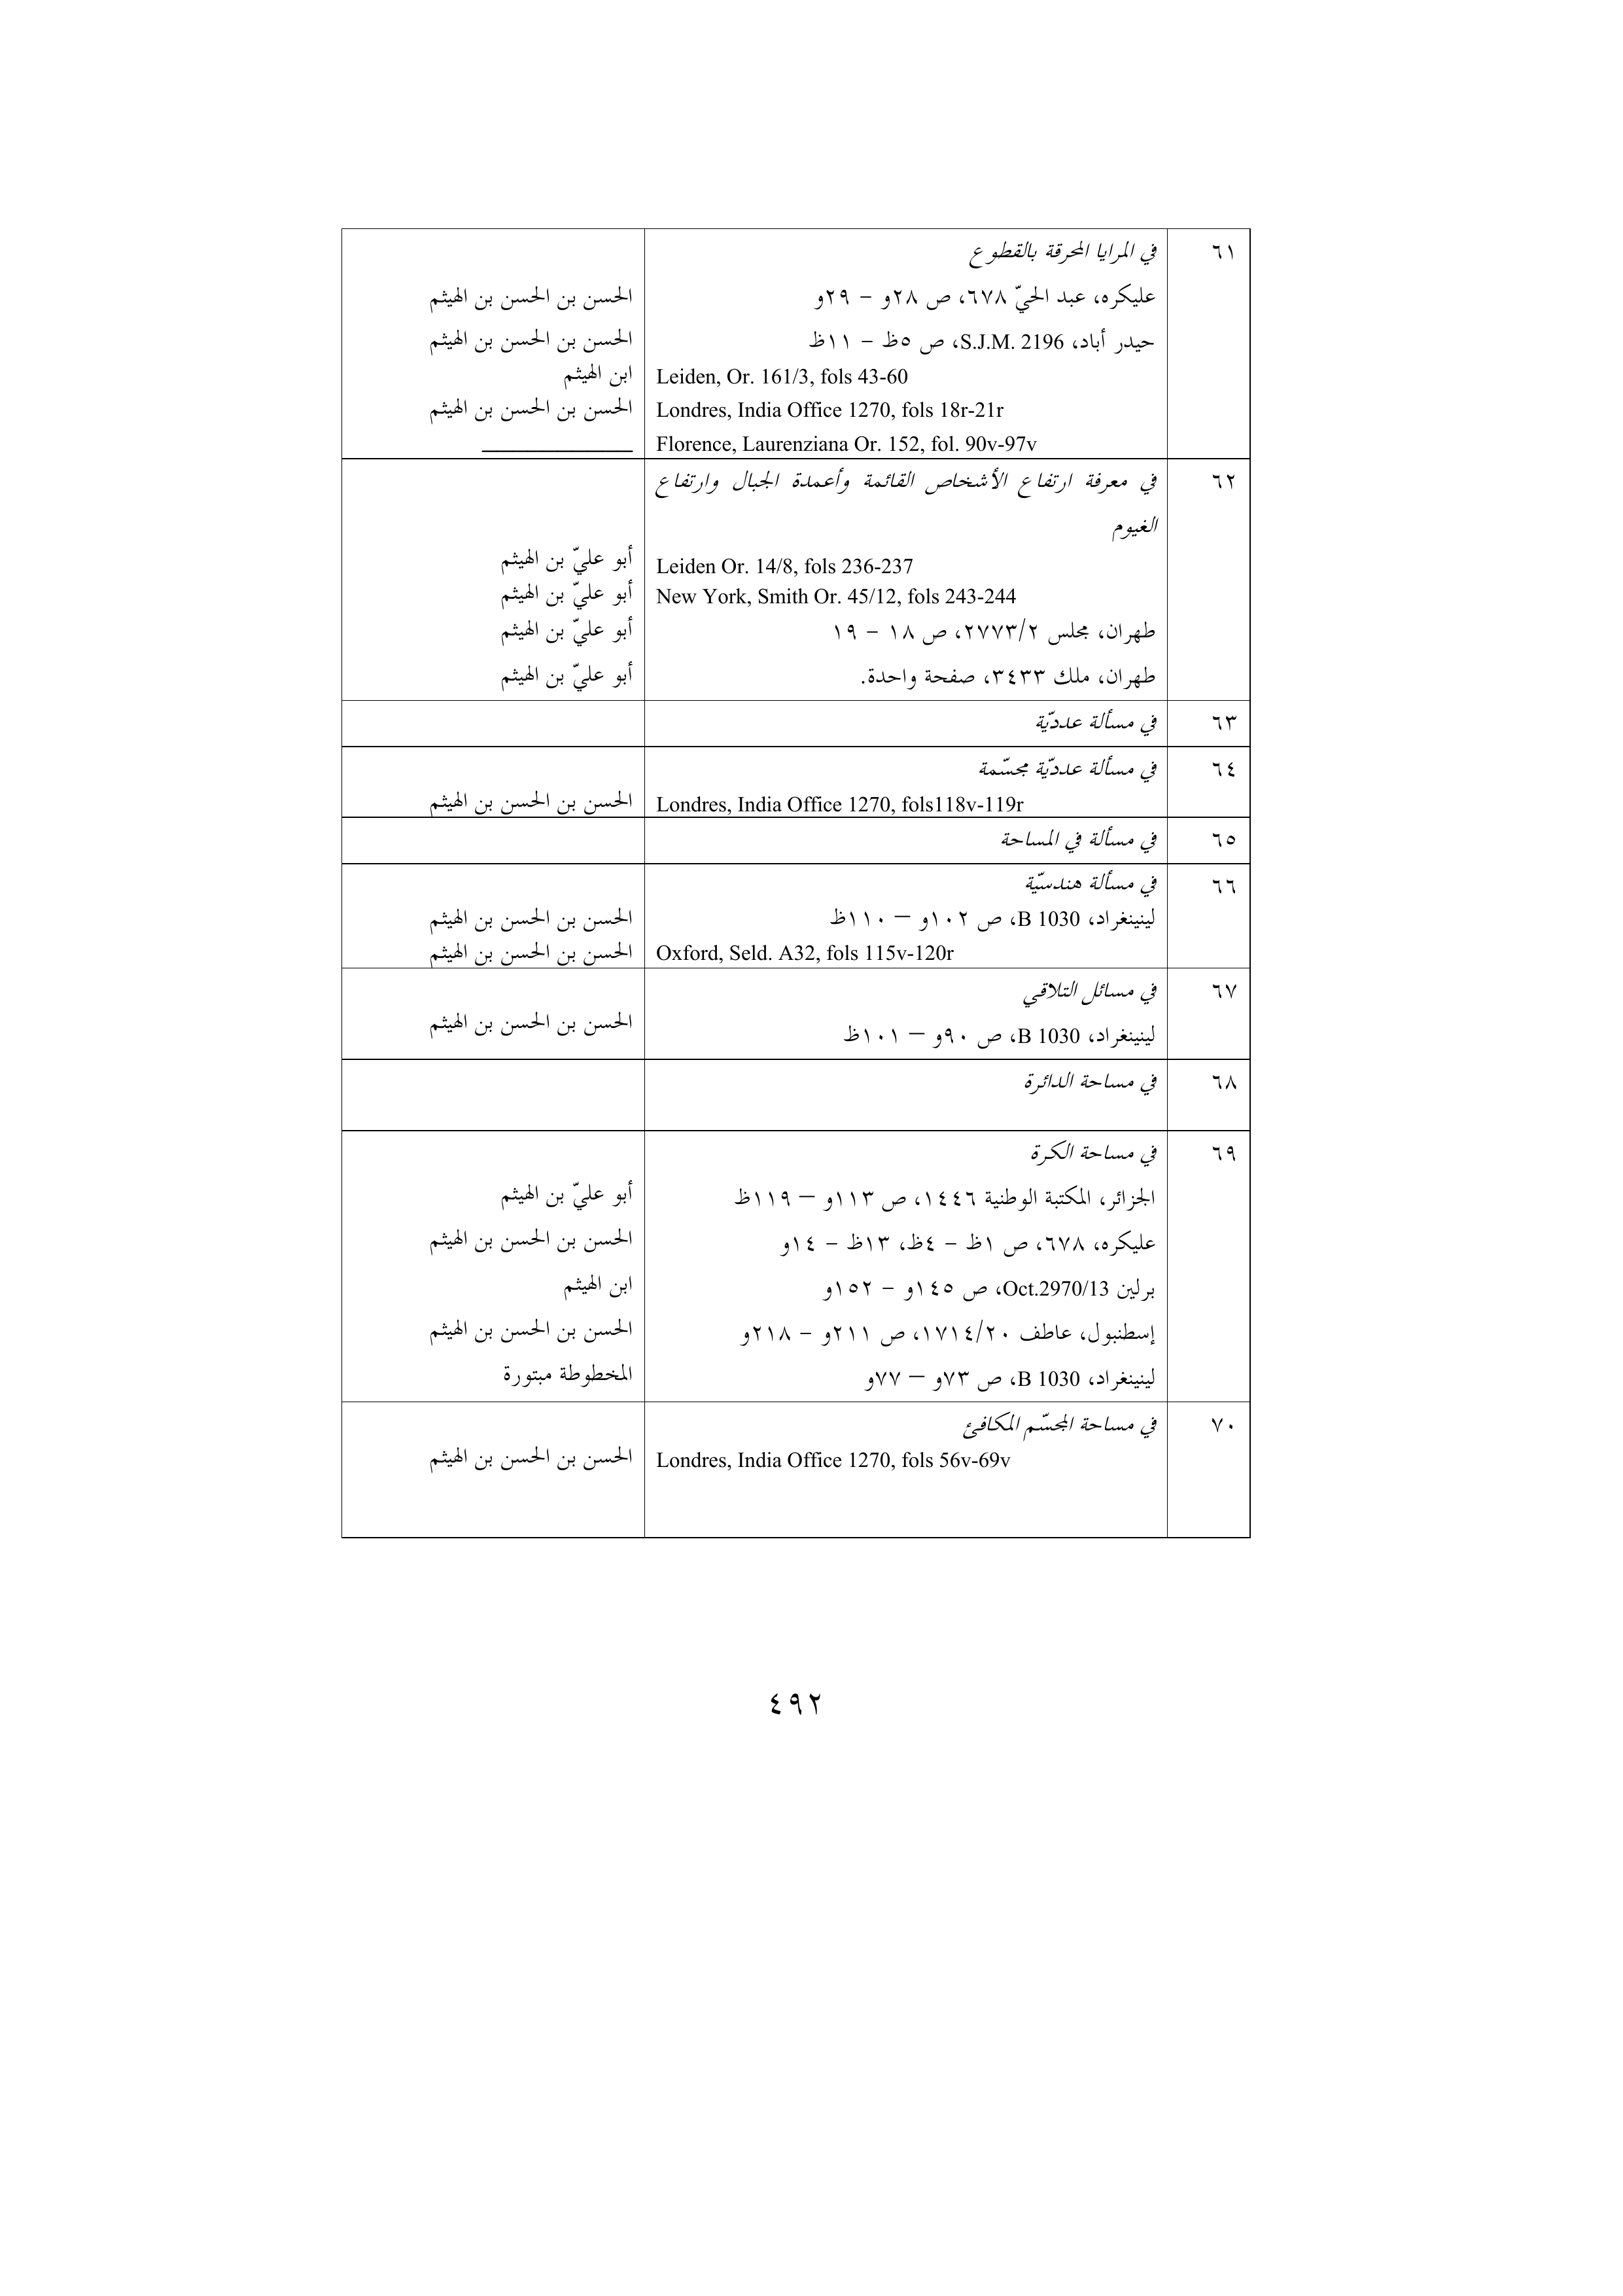 ٦١ في المرايا المحرقة بالقطوع
عليكره، عبد الحيّ ٦٧٨، ص ٢٨و – ٢٩و الحسن بن الحسن بن الهيثم
حيدر أباد، S.J.M. 2196، ص ٥ظ – ١١ظ الحسن بن الحسن بن الهيثم
Leiden, Or. 161/3, fols 43-60 ابن الهيثم
Londres, India Office 1270, fols 18r-21r الحسن بن الحسن بن الهيثم
Florence, Laurenziana Or. 152, fol. 90v-97v ــــــــــــــــــــ
٦٢ في معرفة ارتفاع الأشخاص القائمة وأعمدة الجبال وارتفاع
الغيوم
Leiden Or. 14/8, fols 236-237 أبو عليّ بن الهيثم
New York, Smith Or. 45/12, fols 243-244 أبو عليّ بن الهيثم
طهران، مجلس ٢٧٧٣/٢، ص ١٨ – ١٩ أبو عليّ بن الهيثم
طهران، ملك ٣٤٣٣، صفحة واحدة. أبو عليّ بن الهيثم
٦٣ في مسألة عدديّة
٦٤ في مسألة عدديّة مجسّمة
Londres, India Office 1270, fols118v-119r الحسن بن الحسن بن الهيثم
٦٥ في مسألة في المساحة
٦٦ في مسألة هندسيّة
لينينغراد، B 1030، ص ١٠٢و – ١١٠ظ الحسن بن الحسن بن الهيثم
Oxford, Seld. A32, fols 115v-120r الحسن بن الحسن بن الهيثم
٦٧ في مسائل التلاقي
لينينغراد، B 1030، ص ٩٠و – ١٠١ظ الحسن بن الحسن بن الهيثم
٦٨ في مساحة الدائرة
٦٩ في مساحة الكرة
الجزائر، المكتبة الوطنية ١٤٤٦، ص ١١٣و – ١١٩ظ أبو عليّ بن الهيثم
عليكره، ٦٧٨، ص ١ظ – ٤ظ، ١٣ظ – ١٤و الحسن بن الحسن بن الهيثم
برلين Oct.2970/13، ص ١٤٥و – ١٥٢و ابن الهيثم
إسطنبول، عاطف ١٧١٤/٢٠، ص ٢١١و – ٢١٨و الحسن بن الحسن بن الهيثم
لينينغراد، B 1030، ص ٧٣و – ٧٧و المخطوطة مبتورة
٧٠ في مساحة المجسّم المكافئ
Londres, India Office 1270, fols 56v-69v الحسن بن الحسن بن الهيثم
٤٩٢